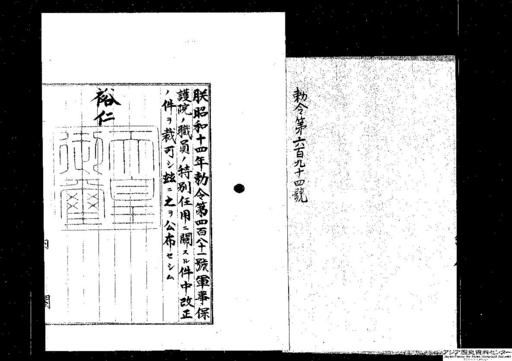 勅令第六百九十四號
朕昭和十四年勅令第四百八十一號軍事保
護院ノ職員ノ特別任用ニ關スル件中改正
ノ件ヲ裁可シ玆ニ之ヲ公布セシム
裕仁
天皇
御璽
内閣
アジア歴史資料センター